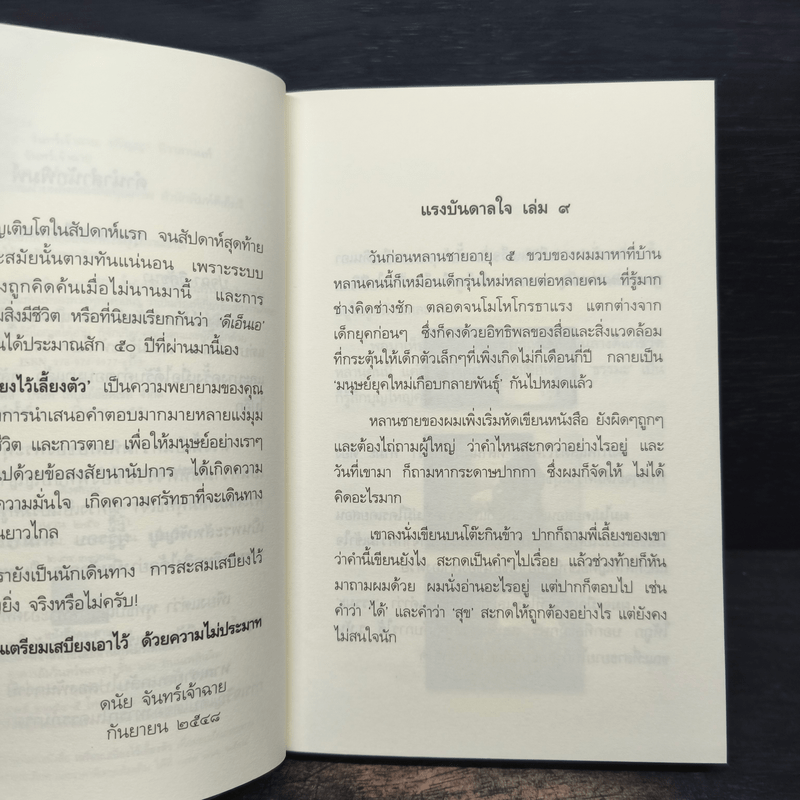 ญเติบโตในสัปดาห์แรก จนสัปดาห์สุดท้าย
ะสมัยนั้นตามทันแน่นอน เพราะระบบ
งถูกคิดค้นเมื่อไม่นานมานี้ และการ
มสิ่งมีชีวิต หรือที่นิยมเรียกกันว่า 'ดีเอ็นเอ'
นได้ประมาณสัก ๕๐ ปีที่ผ่านมานี้เอง
ยงไว้เลี้ยงตัว' เป็นความพยายามของคุณ
งการนำเสนอคำตอบมากมายหลายแง่มุม
ชีวิต และการตาย เพื่อให้มนุษย์อย่างเราๆ
ไปด้วยข้อสงสัยนานัปการ ได้เกิดความ
ความมั่นใจ เกิดความศรัทธาที่จะเดินทาง
นยาวไกล
รายังเป็นนักเดินทาง การสะสมเสบียงไว้
งยิ่ง จริงหรือไม่ครับ!
แตรียมเสบียงเอาไว้ ด้วยความไม่ประมาท
ดนัย จันทร์เจ้าฉาย
กันยายน ๒๕๔๘
แรงบันดาลใจ เล่ม ๙
วันก่อนหลานชายอายุ ๕ ขวบของผมมาหาที่บ้าน
หลานคนนี้ก็เหมือนเด็กรุ่นใหม่หลายต่อหลายคน ที่รู้มาก
ช่างคิดช่างซัก ตลอดจนโมโหโกรธาแรง แตกต่างจาก
เด็กยุคก่อนๆ ซึ่งก็คงด้วยอิทธิพลของสื่อและสิ่งแวดล้อม
ที่กระตุ้นให้เด็กตัวเล็กๆที่เพิ่งเกิดไม่กี่เดือนกี่ปี กลายเป็น
'มนุษย์ยุคใหม่เกือบกลายพันธุ์' กันไปหมดแล้ว
หลานชายของผมเพิ่งเริ่มหัดเขียนหนังสือ ยังผิดๆถูกๆ
และต้องไถ่ถามผู้ใหญ่ ว่าคำไหนสะกดว่าอย่างไรอยู่ และ
วันที่เขามา ก็ถามหากระดาษปากกา ซึ่งผมก็จัดให้ ไม่ได้
คิดอะไรมาก
เขาลงนั่งเขียนบนโต๊ะกินข้าว ปากก็ถามพี่เลี้ยงของเขา
ว่าคำนี้เขียนยังไง สะกดเป็นคำๆไปเรื่อย แล้วช่วงท้ายก็หัน
มาถามผมด้วย ผมนั่งอ่านอะไรอยู่ แต่ปากก็ตอบไป เช่น
คำว่า 'ได้' และคำว่า 'สุข' สะกดให้ถูกต้องอย่างไร แต่ยังคง
ไม่สนใจนัก